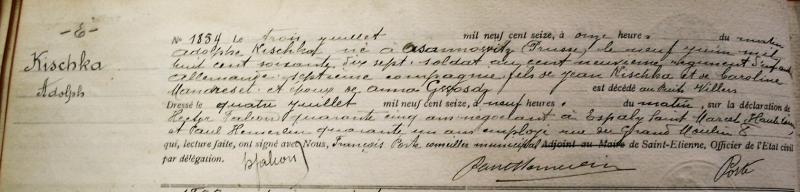 -E-
Kischka
Adolph
No 1834 Le trois juillet mil neuf cent seize, à onze heures du matin
Adolphe Kischka né à (Prusse) le neuf juin mil
huit cent soixante dix sept soldat au cent neuvieme regiment d'infanterie
allemande septieme compagnie fils de Jean Kischka et de Caroline
Mandresel et époux de Anna est décédé au Puits Villiers
Dressé le quatre juillet mil neuf cent seize, à neuf heures du matin, sur la déclaration de
Hector Falcon quarante cinq ans négociant à Espaly Saint Marcel (Haute Loire)
et Paul Hemerlin quarante un ans employé rue du Grand Moulin 8
qui, lecture faite, ont signé avec Nous, François Porte conseiller municipal Adjoint au Maire de Saint-Etienne, Officier de l'Etat civil
par délégation. Falcon Paul Hemerlin Porte